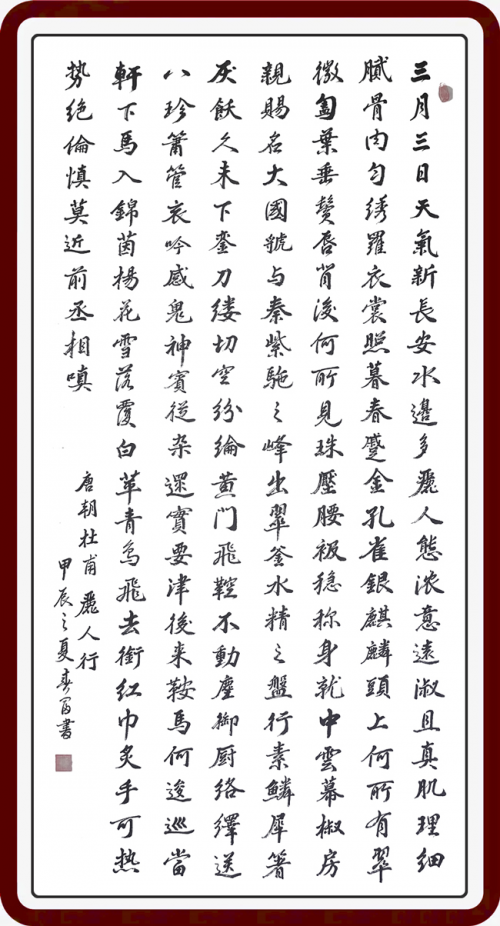 三月三日天氣新長安水邊多麗人態浓意遠淑且真肌理细
腻骨肉匀绣羅衣裳照暮春蹙金孔雀銀麒麟頭上何所有翠
微匎葉垂鬓唇背後何所見珠壓腰衱稳称身就中雲幕椒房
親賜名大國虢与秦紫駞之峰出翠釜水精之盤行素鱗犀箸
厌飫久未下銮刀缕切空纷綸黄门飛鞚不動塵御厨络繹送
八珍箫管哀吟感鬼神賓從杂遝實要津後来鞍馬何逡巡當
軒下馬入錦茵楊花雪落覆白苹青鸟飛去衔红巾炙手可热
势绝倫慎莫近前丞相嗔
唐朝杜甫麗人行
甲辰之夏春書